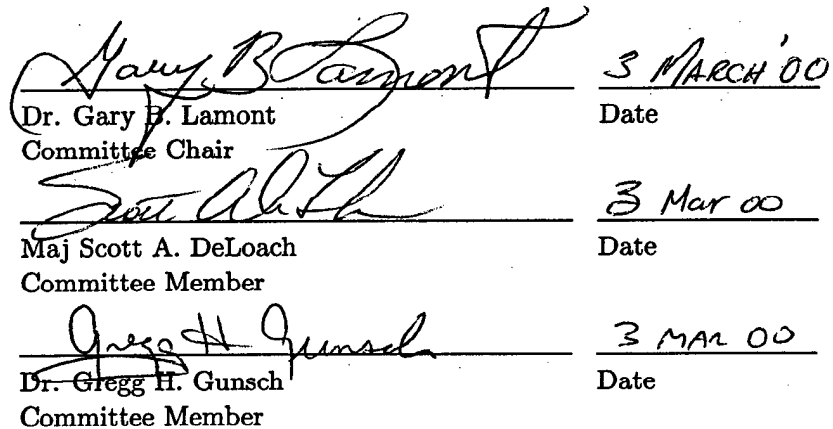 Gary B Lamont 3 MARCH '00
Dr. Gary B. Lamont Date
Committee Chair
Scott A DeLoach 3 Mar 00
Maj Scott A. DeLoach Date
Committee Member
Gregg H Gunsch 3 MAR 00
Dr. Gregg H. Gunsch Date
Committee Member